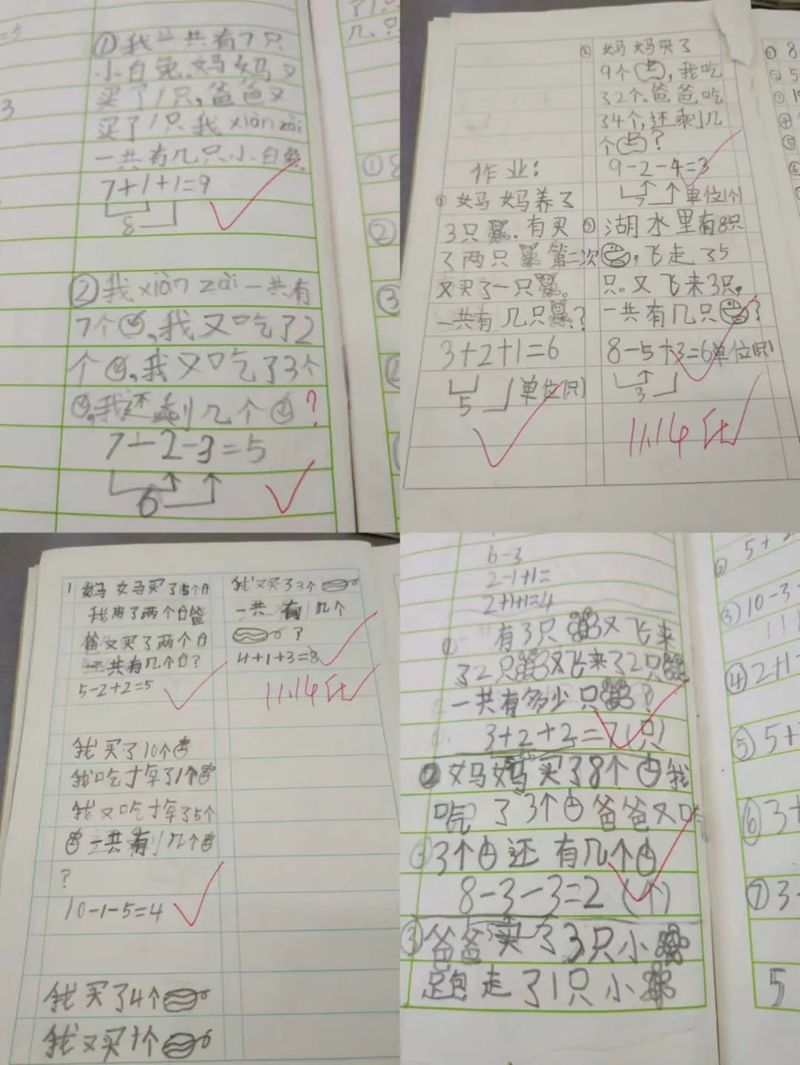 ①我一共有7只
小白兔.妈妈又
买了1只,爸爸又
买了1只我xiàn zài
一共有几只小白兔.
7+1+1=9
8
②我xiàn zài一共有
7个,我又吃了2
个,我又吃了3个
,我还剩几个?
7-2-3=5
6
作业:
①妈妈养了
3只.有买
了两只第二次
又买了一只。
一共有几只?
3+2+1=6
5 单位(只)
②妈妈买了
9个,我吃
了2个.爸爸吃
了4个,还剩几
个?
9-2-4=3
7 单位(个)
③湖水里有8只
,飞走了5
只.又飞来3只,
一共有几只?
8-5+3=6单位(只)
3
11.14
1 妈妈买了5个
我用了两个爸
爸又买了两个
一共有几个?
5-2+2=5
我买了10个
我吃掉了1个
我又吃掉了5个
一共有几个
?
10-1-5=4
我买了4个
我又买1个
我又买了3个
一共有几个
?
4+1+3=8
11.14
6-3
2-1+1=
2+1+1=4
有3只又飞来
了2只又飞来了2只
一共有多少只?
3+2+2=7(只)
②妈妈买了8个我
吃了3个爸爸又吃
3个还有几个
8-3-3=2(个)
③爸爸买了3只小
跑走了1只小
5+
③10-3-
④2+1-
⑤5+
⑥3+
⑦3-
5